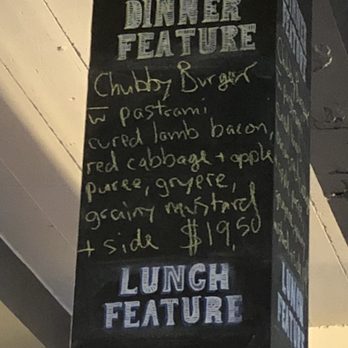 DINNER
FEATURE
Chubby Burger
w pastrami
cured lamb bacon,
red cabbage + apple
puree, gruyere,
grainy mustard
+ side $19,50
LUNCH
FEATURE